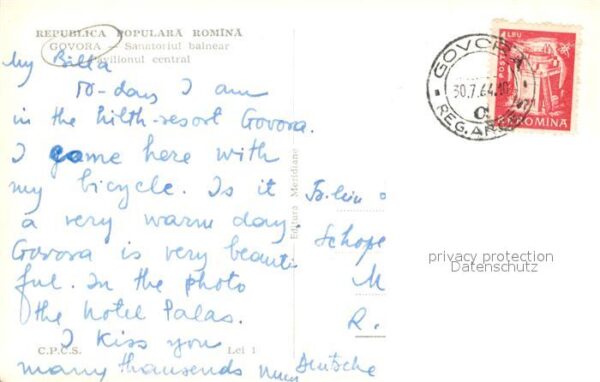 REPUBLICA POPULARĂ ROMÎNĂ
GOVORA — Sanatoriul balnear
Pavilionul central
My Billa
To-day I am
in the hilth-resort Govora.
I came here with
my bicycle. Is it
a very warm day.
Govora is very beauti
ful. In the photo
the hotel Palas.
I kiss you
many thausends
C.P.C.S. Lei 1
Editura Meridiane
Schope
M
R.
Deutsche
GOVORA
30.7.64.10
REG. ARGEȘ
1 LEU
POSTA
R.P.ROMINA
privacy protection
Datenschutz